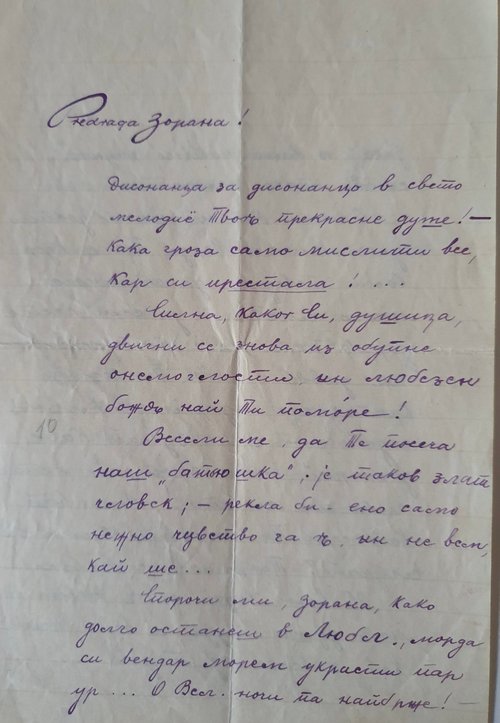 Зорана!
Дисонанца за дисонанцо в свето
мелодиё Твоъ прекрасне душе! —
Кака гроза само мислити все,
Кар си престала! ...
Вигна, Какот Ви, душица,
двигни се знова из обупне
онемоглости, ин љубезен
божъ най Ти поморе!
10
Весели ме, да Те посеча
наш „батюшка"; је таков злат
человек; — рекла би — ено само
нежно чувство га ъ, ин не вем,
кай ше ...
Спорочи ми, Зорана, како
долго останеш в Љубљ., морда
си вендар морем украсти пар
ур ... О Вел. ночи па найбрже! —